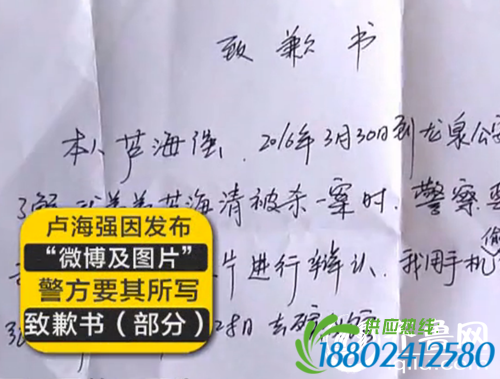 致歉书
本人芦海强,2016年3月30日到龙泉公安
了解 芦海清被杀一案时,警察要
片进行辩认,我用手机偷
28日去
卢海强因发布
“微博及图片”
警方要其所写
致歉书(部分)
供应热线
18802412580